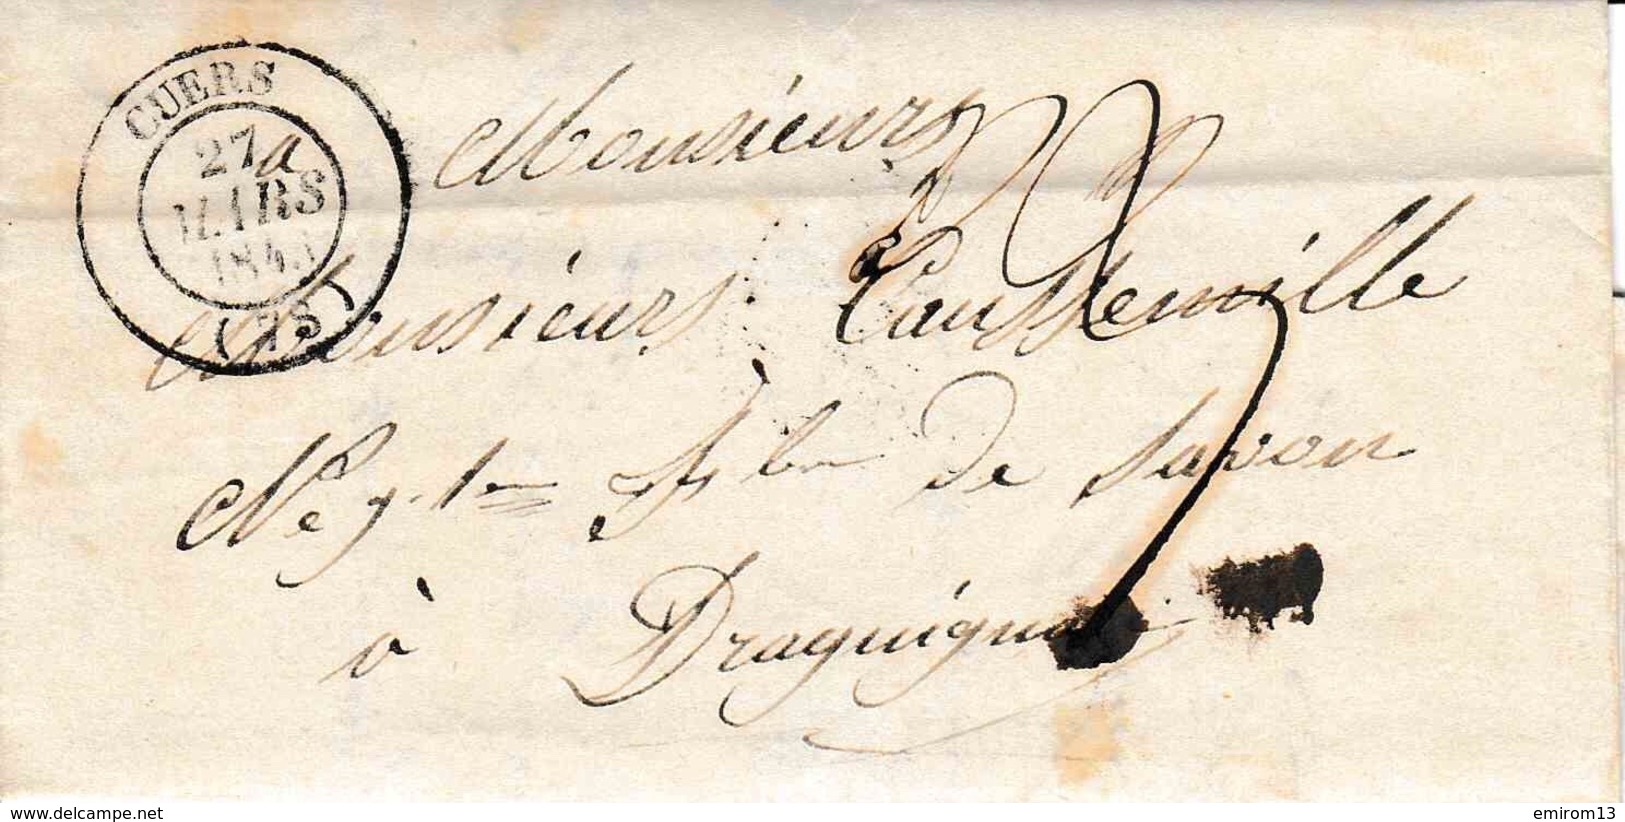 CUERS
27
MARS
184
(78)
a Monsieurs
Monsieurs Caussemille
Neg.ts F.bn de Savon
à Draguignan
delcampe.net
emirom13